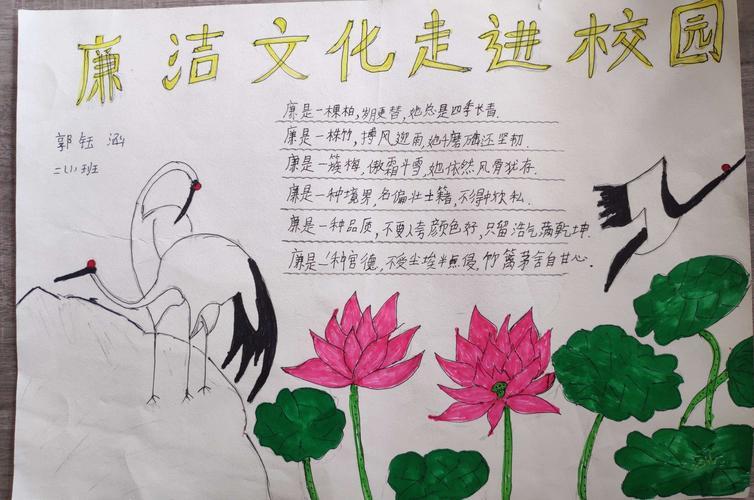 廉洁文化走进校园
郭钰涵
二(1)班
廉是一棵柏,岁月更替,她总是四季长青.
廉是一株竹,搏风迎雨,她千磨万砺还坚韧.
廉是一簇梅,傲霜斗雪,她依然风骨犹存.
廉是一种境界,名偏壮士籍,不得中饮私.
廉是一种品质,不要人夸颜色好,只留浩气满乾坤.
廉是一种官德,不受尘埃半点侵,竹篱茅舍自甘心.